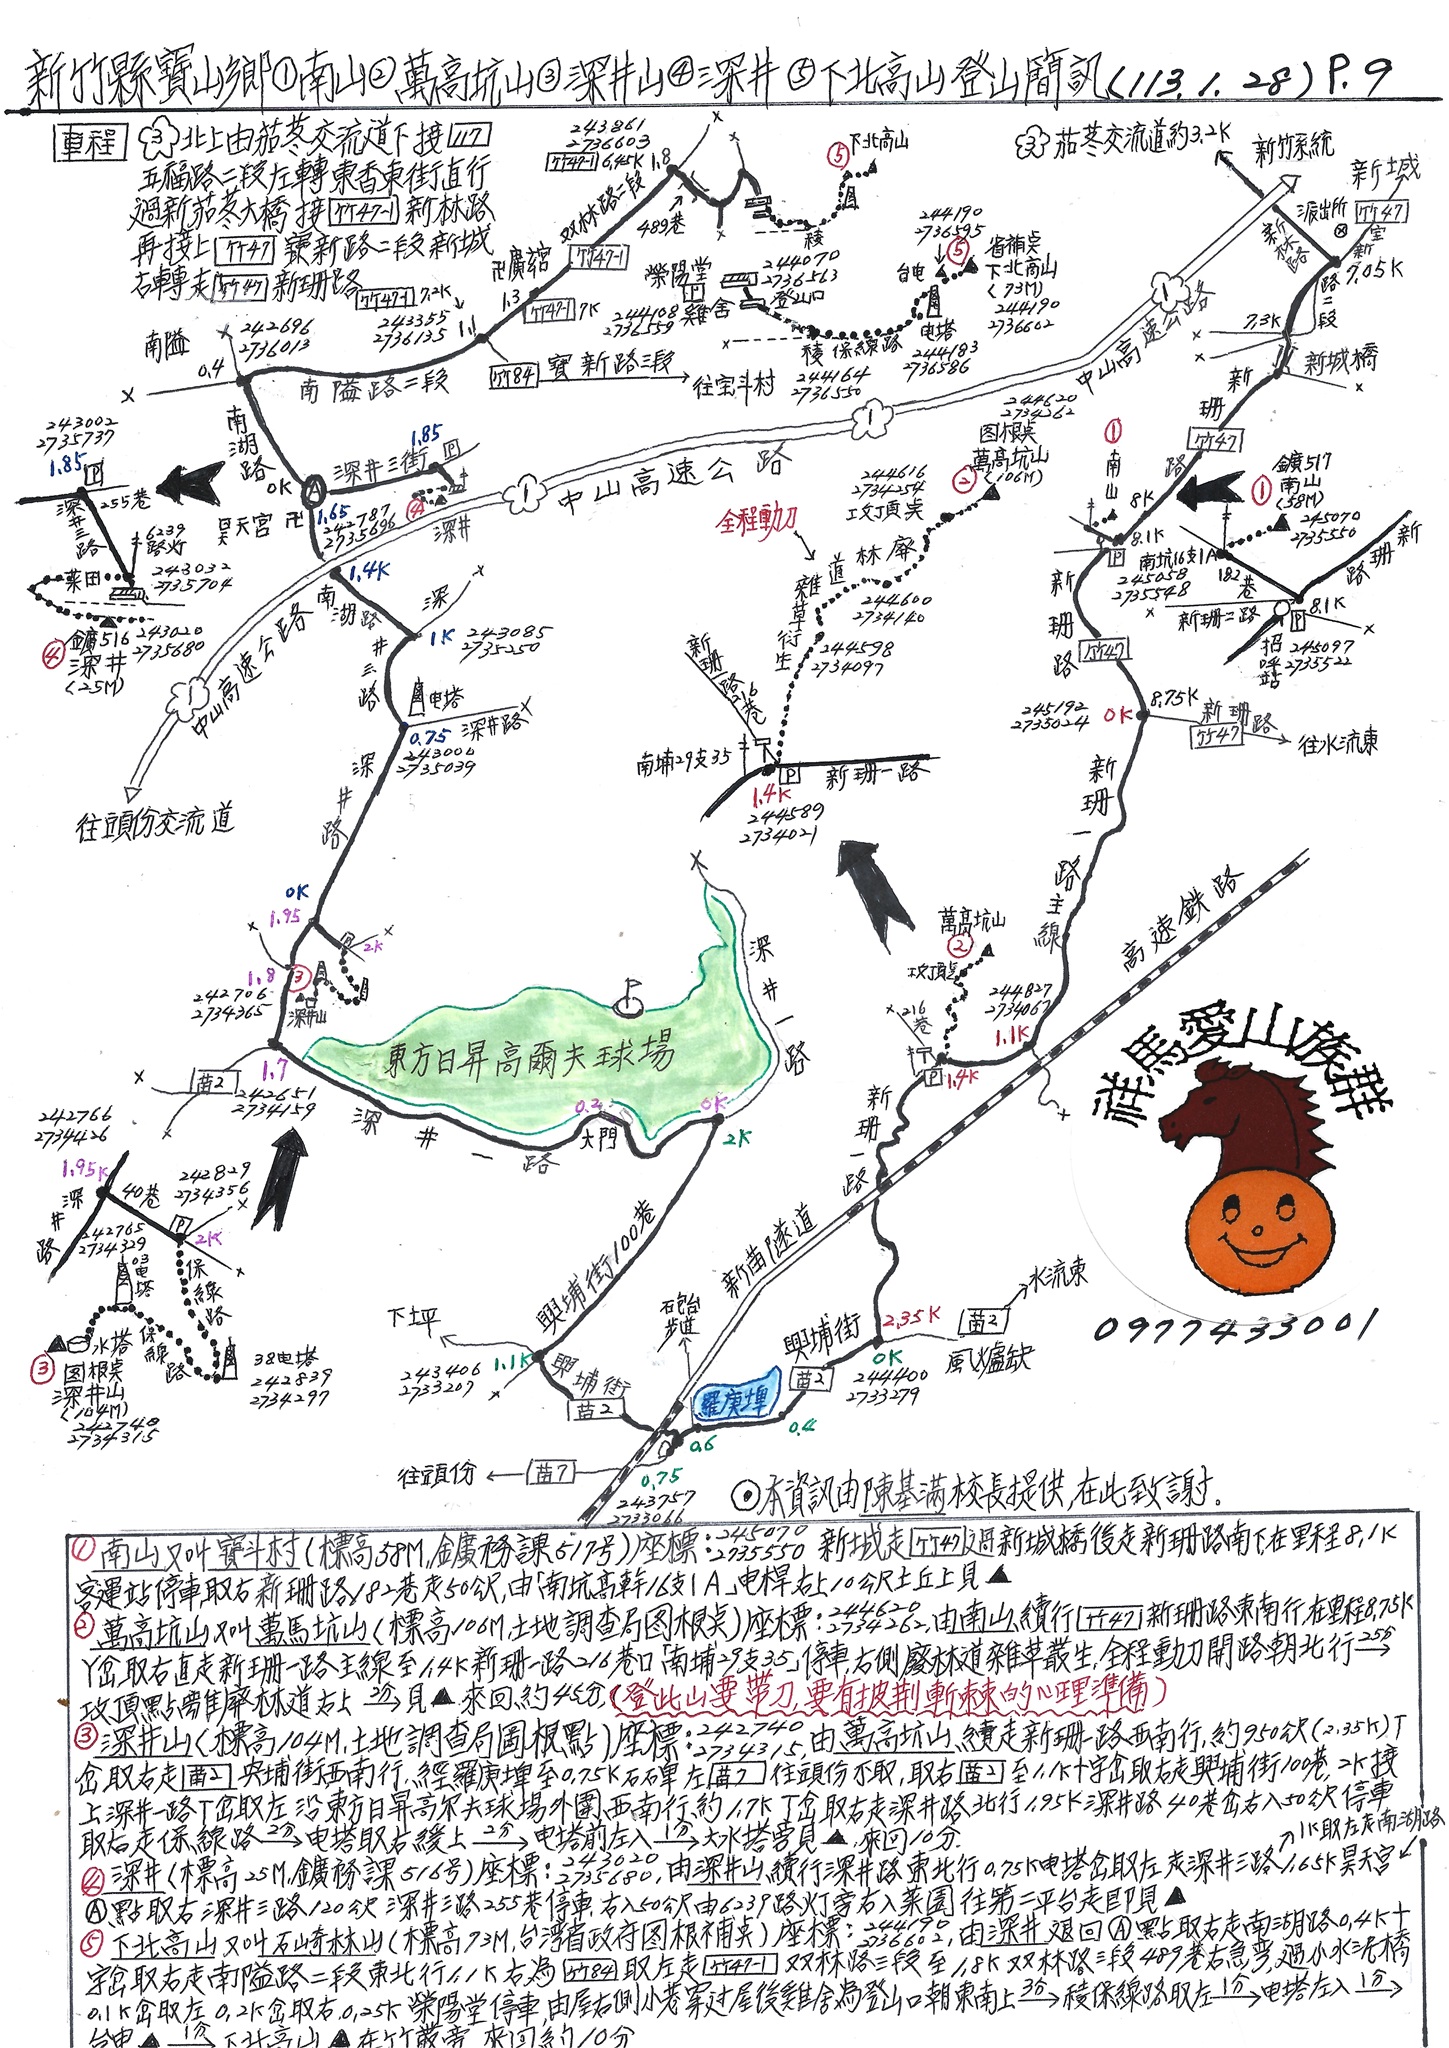 新竹縣寶山鄉①南山②萬高坑山③深井山④深井⑤下北高山登山簡訊(113.1.28) P.9
車程 ③北上由茄苳交流道下接 117
五福路二段左轉東香東街直行
過新茄苳大橋接 竹47-1 新林路
再接上 竹47 寶新路二段新城
右轉走 竹47 新珊路
243861
2736603
竹47-1 6.45K 1.8
双林路二段
489巷
⑤ 下北高山
稜
③ 茄苳交流道約3.2K
新竹系統
新城
派出所
竹47
新林路
宝新路二段
7.05K
7.3K
新城橋
卍廣舘
竹47-1
1.3
竹47-1 7K
竹47-1 7.2K
243355
2736135
1.1
榮陽堂
P 雞舍
244108
2736559
244070
2736563
登山口
244190
2736595
台电
⑤ 省補奌
下北高山
(73M)
244190
2736602
电塔
244183
2736586
稜 保線路
244164
2736550
南隘
242696
2736013
0.4
南隘路二段
竹84 寶新路三段
往宝斗村
中山高速公路
1
南湖路
0K
A
深井三街
1.85
P
④
深井
昊天宮 卍
1.65
242787
2735696
243002
2735737
1.85
P
255巷
深井三路
6239
路灯
菜田
243032
2735704
④ 鑛516
深井
(25M)
243020
2735680
中山高速公路
1
1.4K
南湖路
深井三路
1K
243085
2735250
电塔
0.75
深井路
243006
2735039
往頭份交流道
中山高速公路
1
全程動刀
244620
2734262
图根奌
萬高坑山
② (106M)
244616
2734254
攻頂奌
雜草衍生
道 林 廢
244600
2734140
244598
2734097
新珊一路216巷
南埔29支35
P
1.4K
244589
2734021
新珊一路
①
南山
新珊路
竹47
8K
8.1K
P
南坑16支1A
245058
2735548
鑛517
① 南山
(58M)
245070
2735550
182巷
新珊路
新珊二路
8.1K
P
招呼站
245097
2735522
新珊路
竹47
8.75K
245192
2735024
0K
新珊路
竹47
往水流東
新珊一路主線
高速鉄路
深井路
0K
1.95
P
2K
1.8
③
242706
2734365
深井山
苗2
1.7
242651
2734159
東方日昇高爾夫球場
深井一路
深井一路
0.2
大門
0K
2K
萬高坑山
②
攻頂奌
216巷
244827
2734067
1.1K
P 1.4K
新珊一路
祥馬愛山族群
0977433001
242766
2734426
1.95K
深井路
40巷
242829
2734356
P
2K
242765
2734329
03电塔
保線路
水塔
保線路
③ 图根奌
深井山
(104M)
242740
2734315
38电塔
242839
2734297
興埔街100巷
下坪
243406
2733207
1.1K
興埔街
苗2
石砲台步道
新苗隧道
羅庚埤
興埔街
苗2
2.35K
0K
244400
2733279
苗2
水流東
風爐缺
0.4
0.6
0.75
243757
2733066
往頭份
苗7
⊙本資訊由陳基滿校長提供,在此致謝.
①南山又叫寶斗村(標高58M,金鑛務課517号)座標:245070 2735550 新城走 竹47 過新城橋後走新珊路南下在里程8.1K
客運站停車取右新珊路182巷走50公尺,由「南坑高幹16支1A」电桿右上10公尺土丘上見▲
②萬高坑山又叫萬馬坑山(標高106M,土地調查局图根奌)座標:244620 2734262,由南山續行 竹47 新珊路東南行,在里程8.75K
Y岔取右直走新珊一路主線至1.4K新珊一路216巷口「南埔29支35」停車,右側廢林道雜草叢生,全程動刀開路朝北行25分→
攻頂點需離廢林道右上2分→見▲.來回約45分(登此山要帶刀,要有披荆斬棘的心理準備)
③深井山(標高104M,土地調查局圖根點)座標:242740 2734315,由萬高坑山續走新珊一路西南行,約950公尺(2.35K)丁
岔取右走 苗2 興埔街西南行,經羅庚埤至0.75K石碑左 苗7 往頭份不取,取右 苗2 至1.1K十字岔取右走興埔街100巷,2K接
上深井一路丁岔取左沿東方日昇高尔夫球場外圍西南行,約1.7K丁岔取右走深井路北行1.95K深井路40巷岔右入50公尺停車
取右走保線路2分→电塔取右緩上2分→电塔前左入1分→大水塔旁見▲.來回10分.
④深井(標高25M,鑛務課516号)座標:243020 2735680,由深井山續行深井路東北行0.75K电塔岔取左走深井三路↗1K取左走南湖路 1.65K昊天宮
Ⓐ點取右深井三路120公尺深井三路255巷停車,右入50公尺由6239路灯旁右入菜園往第二平台走即見▲
⑤下北高山又叫石崎林山(標高73M,台灣省政府图根補奌)座標:244190 2736602,由深井退回Ⓐ點取右走南湖路0.4K十
字岔取右走南隘路二段東北行1.1K右為 竹84 取左走 竹47-1 双林路三段至1.8K双林路三段489巷右急弯,過小水泥橋
0.1K岔取左0.2K岔取右0.25K榮陽堂停車,由屋右側小巷穿过屋後雞舍為登山口朝東南上3分→稜保線路取左1分→电塔左入1分→
台电▲1分→下北高山▲在竹叢旁 來回約10分